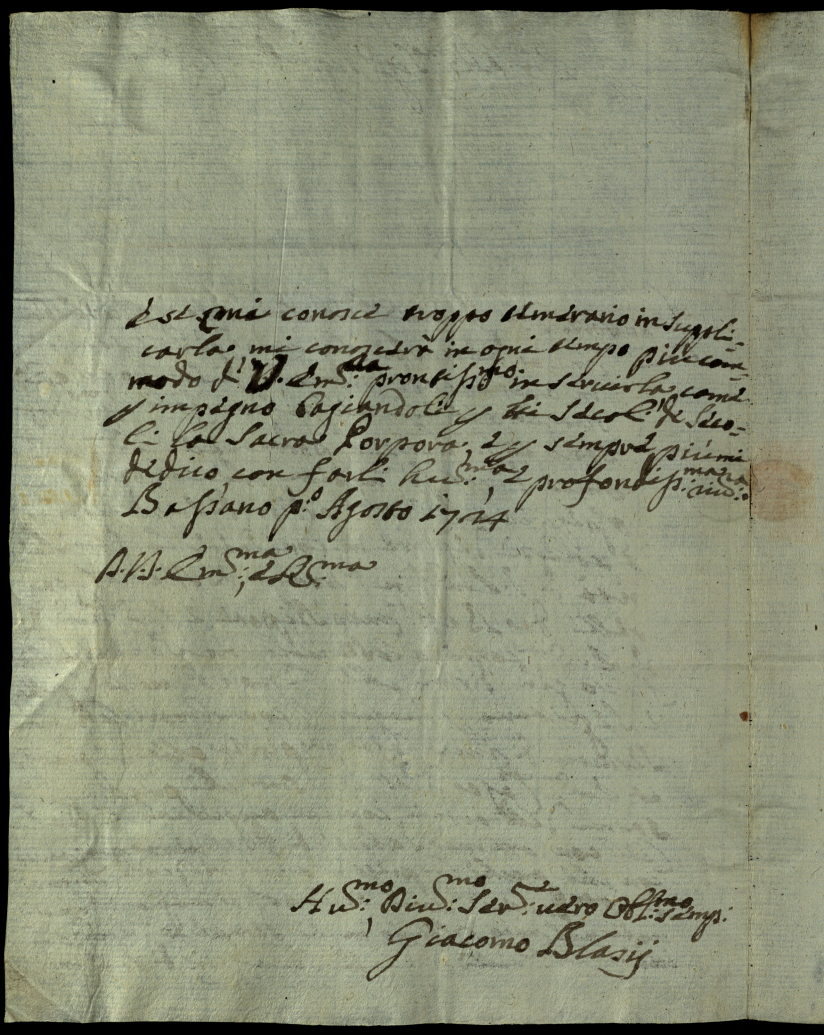 è se mi conosce troppo temerario in suppli-
carla, mi conoscerà in ogni tempo più com-
modo di V. Em.za prontiss.mo in servirla come
p impegno baciandoli p li secoli de seco-
li la Sacra Porpora, e p sempre più mi
dedico con farli hu.ma e profondiss.ma riu.za
Bassano p.o Agosto 1724
D.V. Em.ma e R.ma
Hu.mo Diu.mo Ser.e uero Obl.mo semp:
Giacomo Blasij